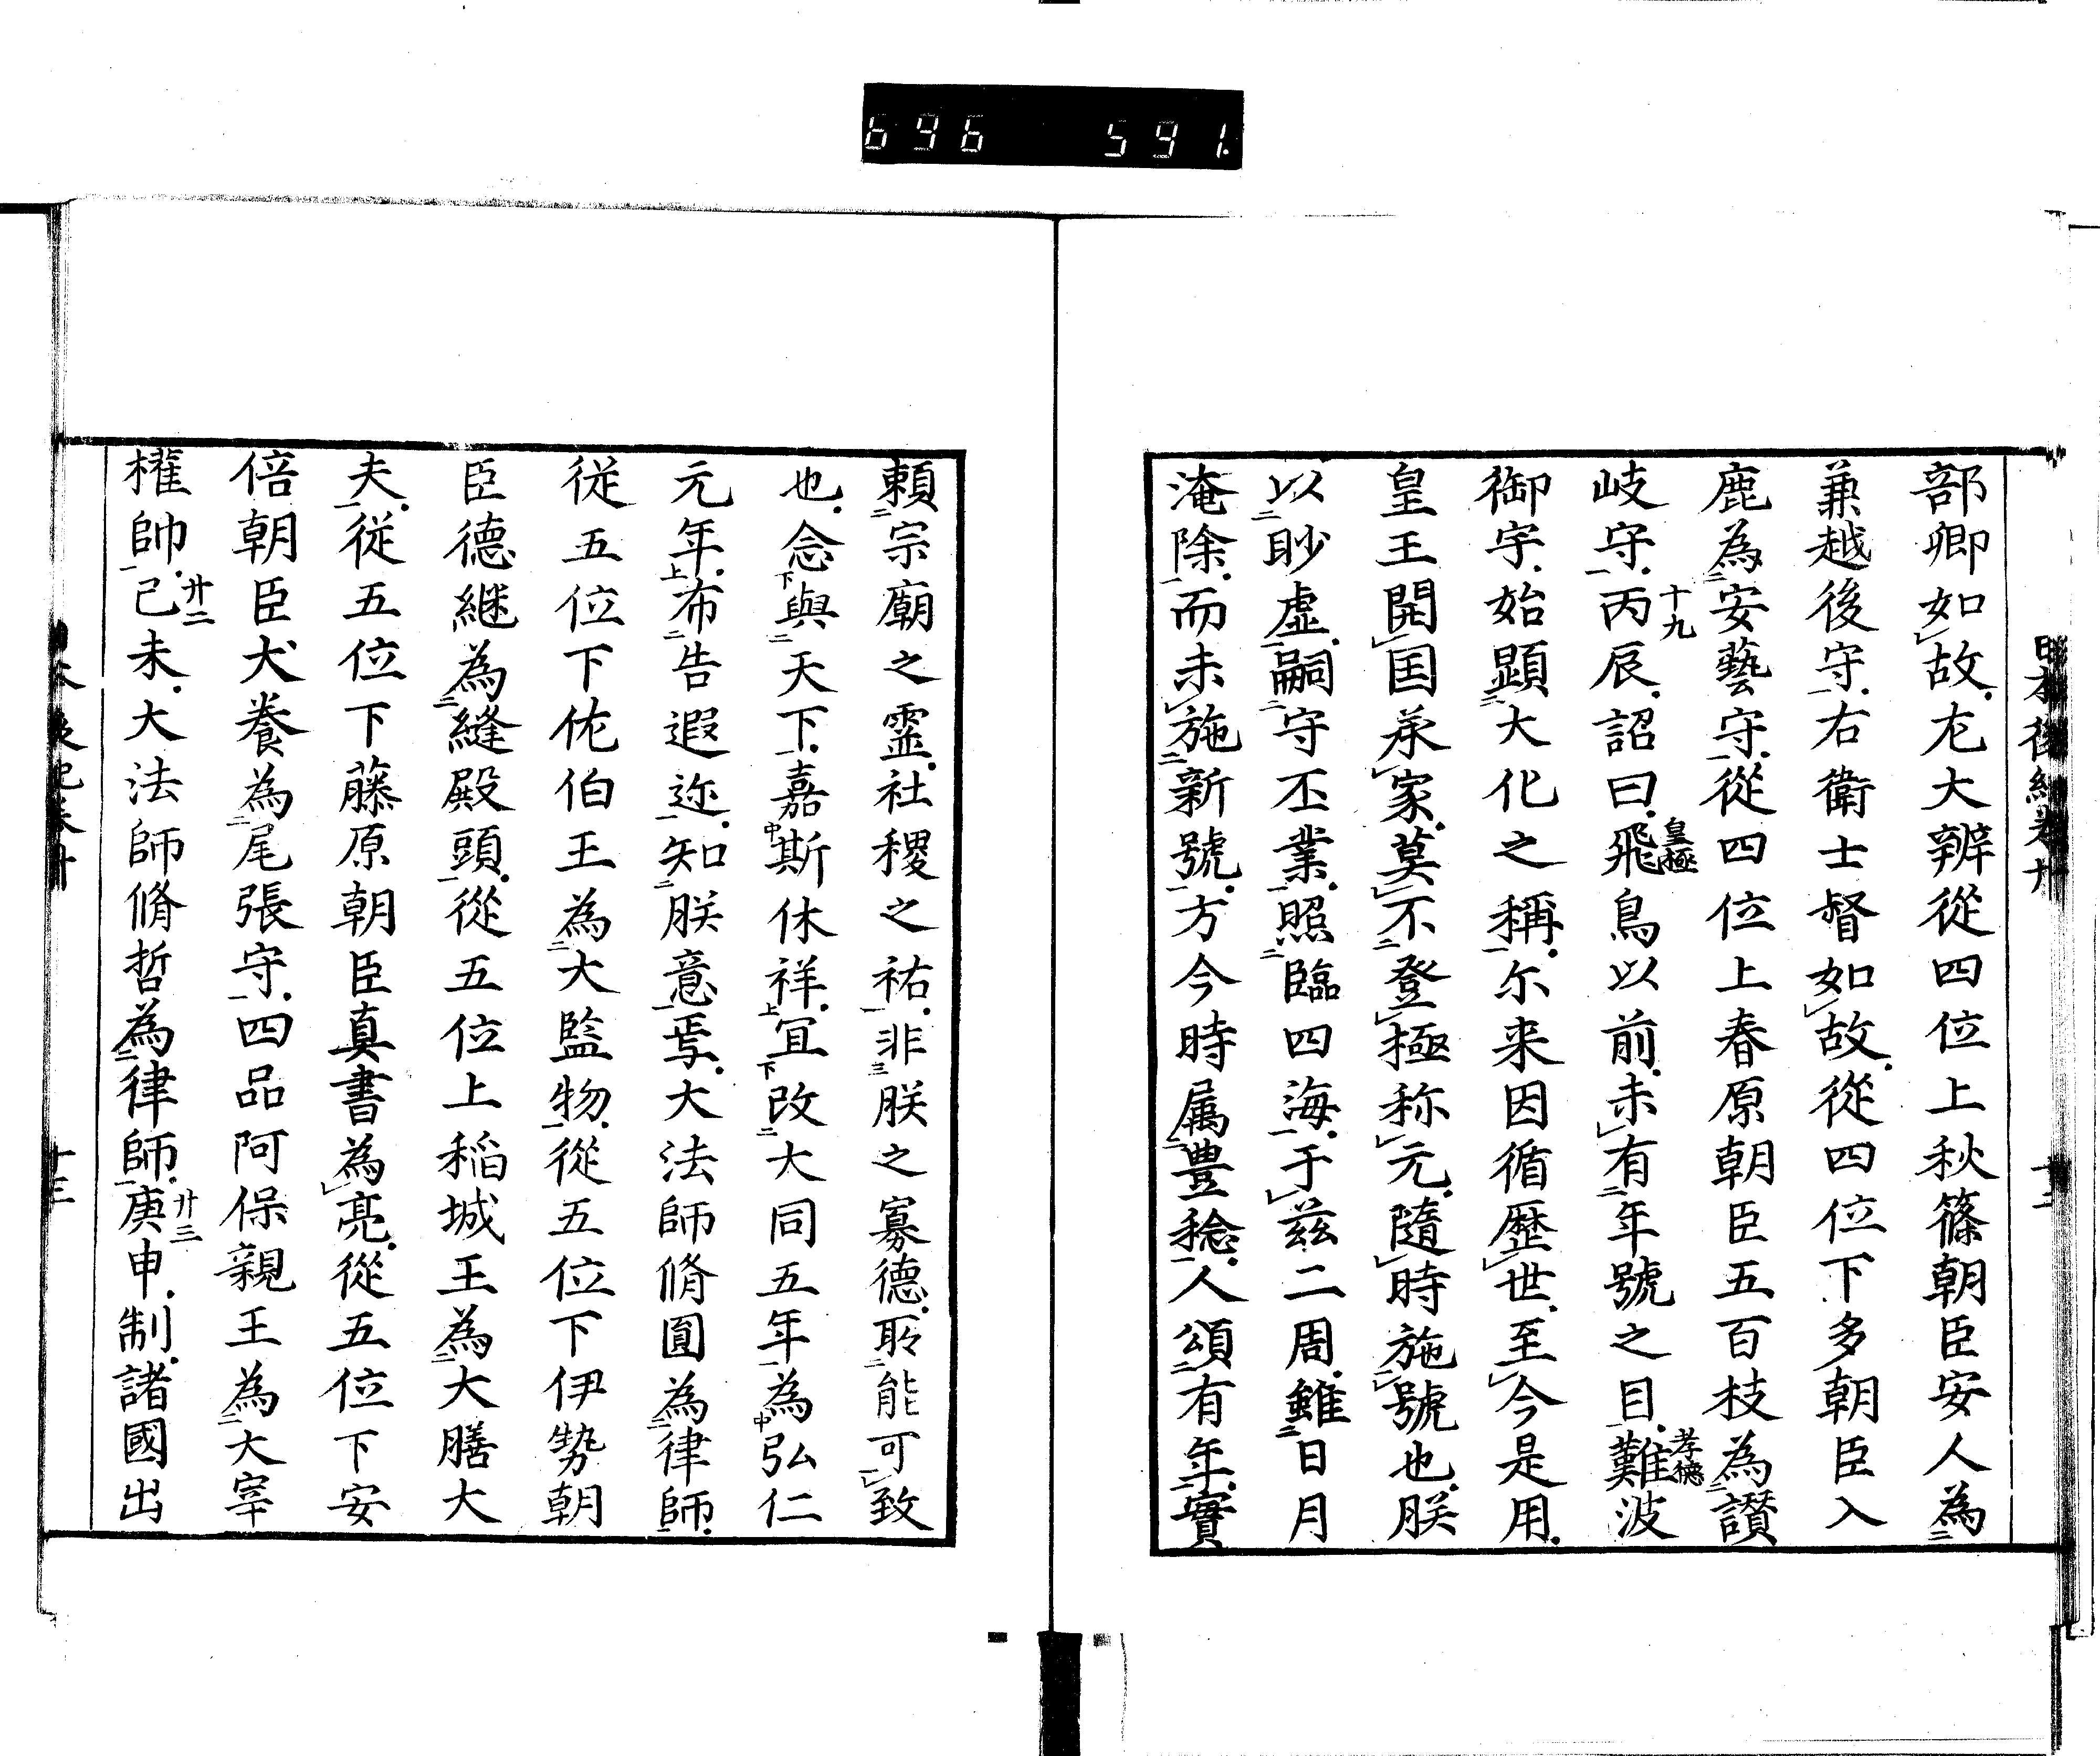 696 591.
日本後紀卷廿 十二
部卿如故尤大辨從四位上秋篠朝臣安人為
兼越後守右衛士督如故從四位下多朝臣入
鹿為安藝守從四位上春原朝臣五百枝為讃
岐守十九丙辰詔曰皇極飛鳥以前未有年號之目孝德難波
御宇始顕大化之稱尓来因循歴世至今是用
皇王開国承家莫不登極称元隨時施號也朕
以眇虚嗣守丕業照臨四海于茲二周雖日月
淹除而未施新號方今時属豊稔人頌有年實
頼宗廟之霊社稷之祐非朕之寡德聆能可致
也念與天下嘉斯休祥宜改大同五年為弘仁
元年布告遐迩知朕意焉大法師脩圓為律師
従五位下佗伯王為大監物從五位下伊勢朝
臣德継為縫殿頭從五位上稲城王為大膳大
夫從五位下藤原朝臣真書為亮從五位下安
倍朝臣犬養為尾張守四品阿保親王為大宰
權帥廿二己未大法師脩哲為律師廿三庚申制諸國出
十三